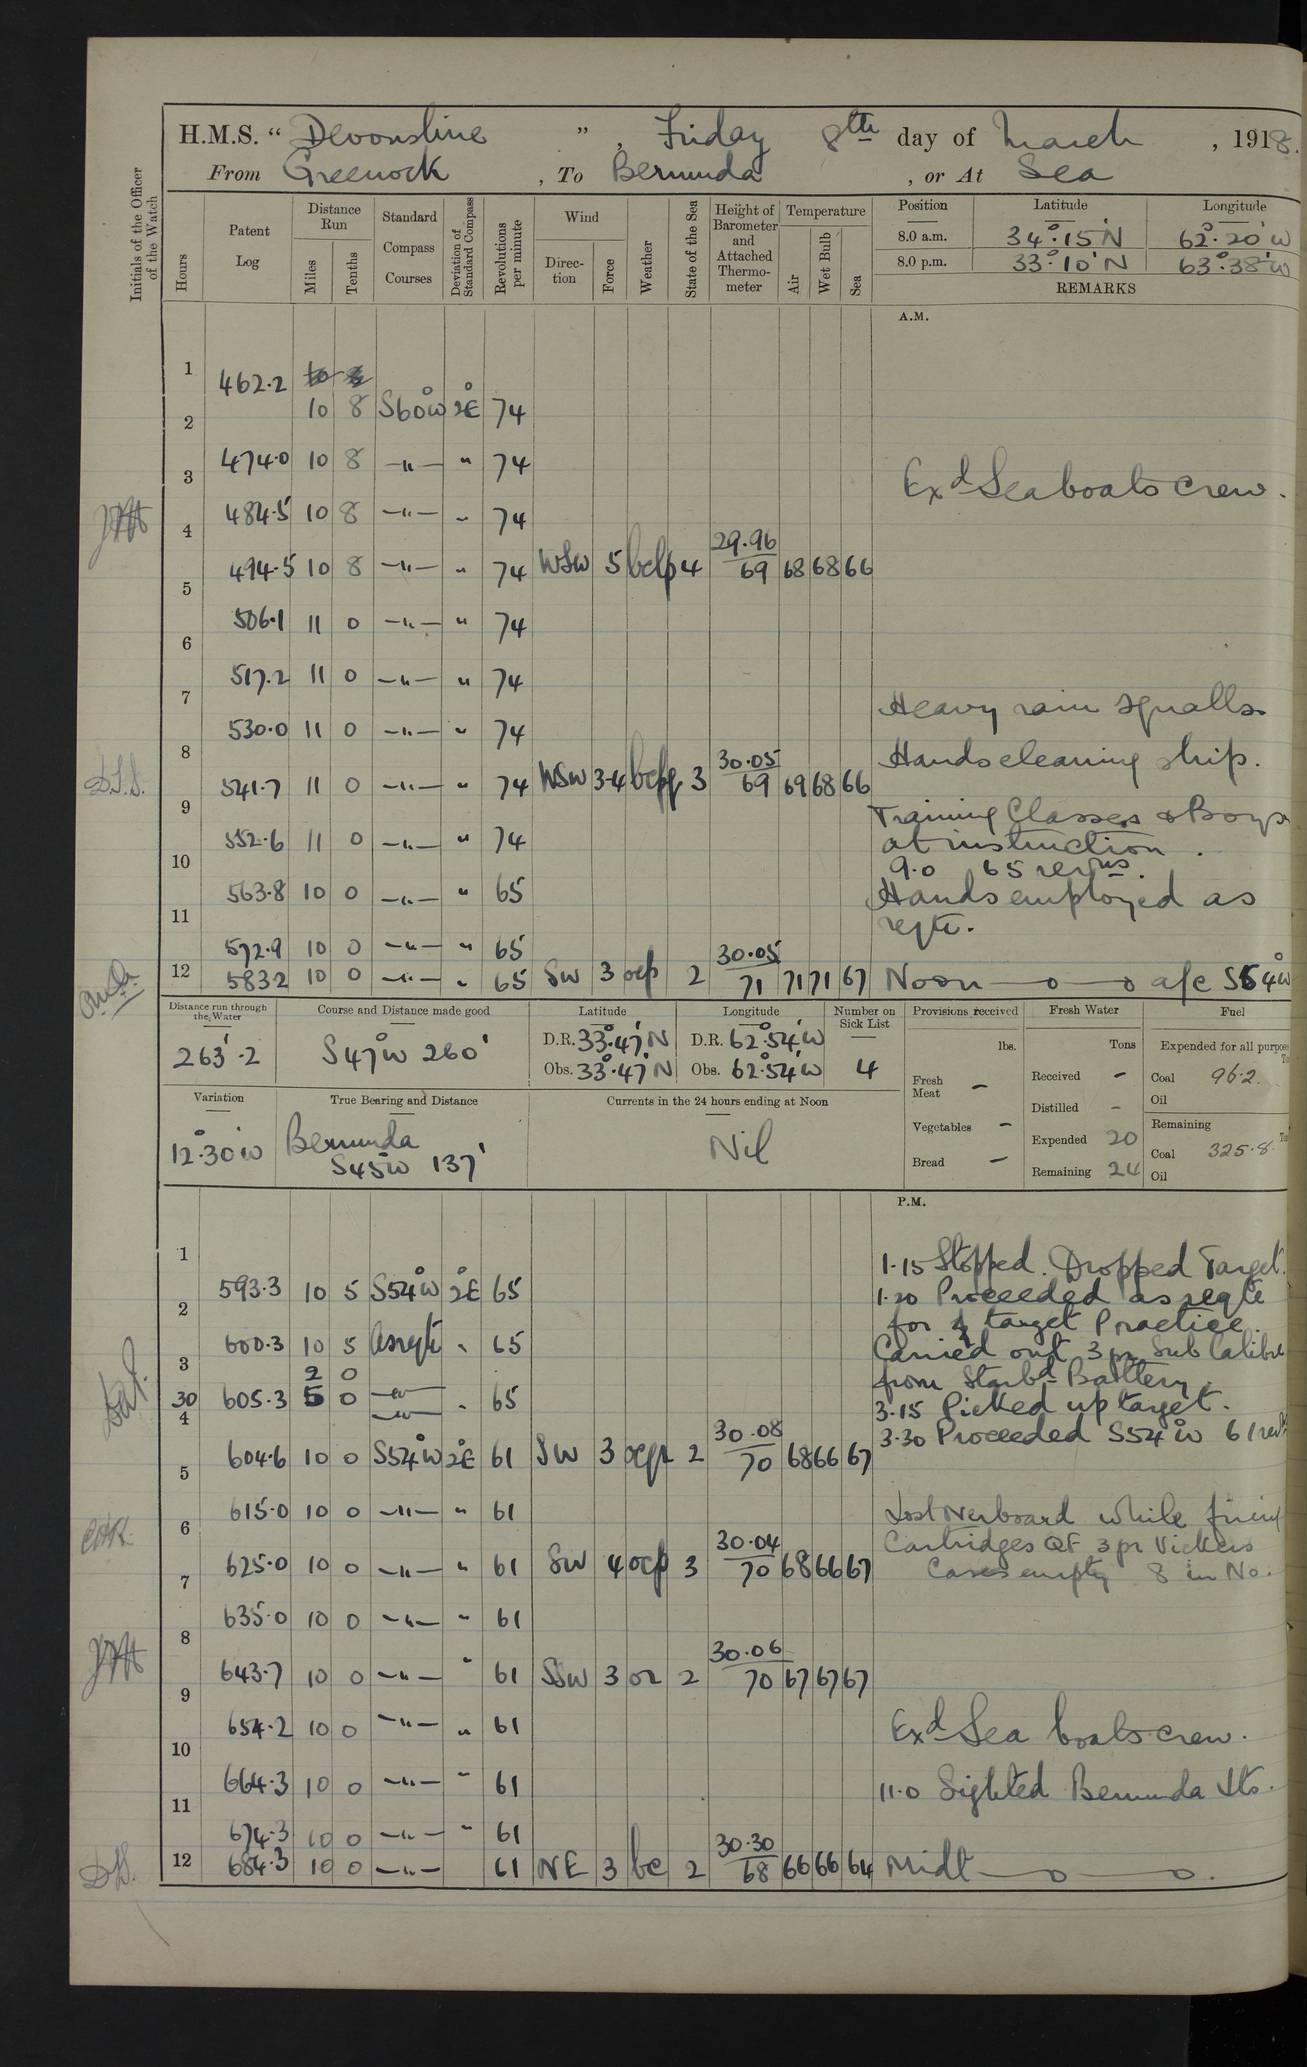 H.M.S. “ Devonshire ”, Friday 8th day of March, 1918.
From Greenock, To Bermuda, or At Sea
Initials of the Officer of the Watch
Hours
Patent Log
Distance Run
Miles
Tenths
Standard Compass Courses
Deviation of Standard Compass
Revolutions per minute
Wind
Direction
Force
Weather
State of the Sea
Height of Barometer and Attached Thermometer
Temperature
Air
Wet Bulb
Sea
Position Latitude Longitude
8.0 a.m. 34°.15'N 62°.20'W
8.0 p.m. 33°.10'N 63°.38'W
REMARKS
A.M.
1 462.2 10 8 S60°W 2°E 74
2 474.0 10 8 —"— " 74
3 484.5 10 8 —"— " 74
Exd Seaboats crew.
4 494.5 10 8 —"— " 74 WSW 5 4 29.96 69 68 68 66
5 506.1 11 0 —"— " 74
6 517.2 11 0 —"— " 74
7 530.0 11 0 —"— " 74
Heavy rain squalls
8 541.7 11 0 —"— " 74 WSW 3-4 3 30.05 69 69 68 66
Hands cleaning ship.
9 552.6 11 0 —"— " 74
Training Classes & Boys
at instruction.
9.0 65 revns.
10 563.8 10 0 —"— " 65
Hands employed as
reqte.
11 572.9 10 0 —"— " 65
12 583.2 10 0 —"— " 65 SW 3 ocp 2 30.05 71 71 71 67 Noon —o—o a/c S54°W
Distance run through the Water
263'.2
Course and Distance made good
S47°W 260'
Latitude
D.R. 33°.47'N
Obs. 33°.47'N
Longitude
D.R. 62°.54'W
Obs. 62°.54'W
Number on Sick List
4
Provisions received
lbs.
Fresh Meat —
Vegetables —
Bread —
Fresh Water
Tons
Received -
Distilled -
Expended 20
Remaining 24
Fuel
Expended for all purpose
Coal 96.2.
Oil
Remaining
Coal 325.8
Oil
Variation
12°.30'W
True Bearing and Distance
Bermuda
S45°W 137'
Currents in the 24 hours ending at Noon
Nil
P.M.
1 593.3 10 5 S54°W 2°E 65
1.15 Stopped. Dropped Target.
1.20 Proceeded as reqte
2 600.3 10 5 As reqte " 65
for target Practice.
Carried out 3pr Sub Calibre
3 2 0
from Starbd Battery.
30 605.3 5 0 —"— " 65
4 —"—
3.15 Picked up target.
3.30 Proceeded S54°W 61 revs
604.6 10 0 S54°W 2°E 61 SW 3 2 30.08 70 68 66 67
5 615.0 10 0 —"— " 61
Lost overboard while firing
6 625.0 10 0 —"— " 61 SW 4 ocp 3 30.04 70 68 66 67
Cartridges QF 3pr Vickers
Cases empty 8 in No.
7 635.0 10 0 —"— " 61
8 643.7 10 0 —"— " 61 SSW 3 or 2 30.06 70 67 67 67
9 654.2 10 0 —"— " 61
Exd Sea boats crew.
10 664.3 10 0 —"— " 61
11.0 Sighted Bermuda Lts.
11 674.3 10 0 —"— " 61
12 684.3 10 0 —"— 61 NE 3 bc 2 30.30 68 66 66 64 Midt —o—o.